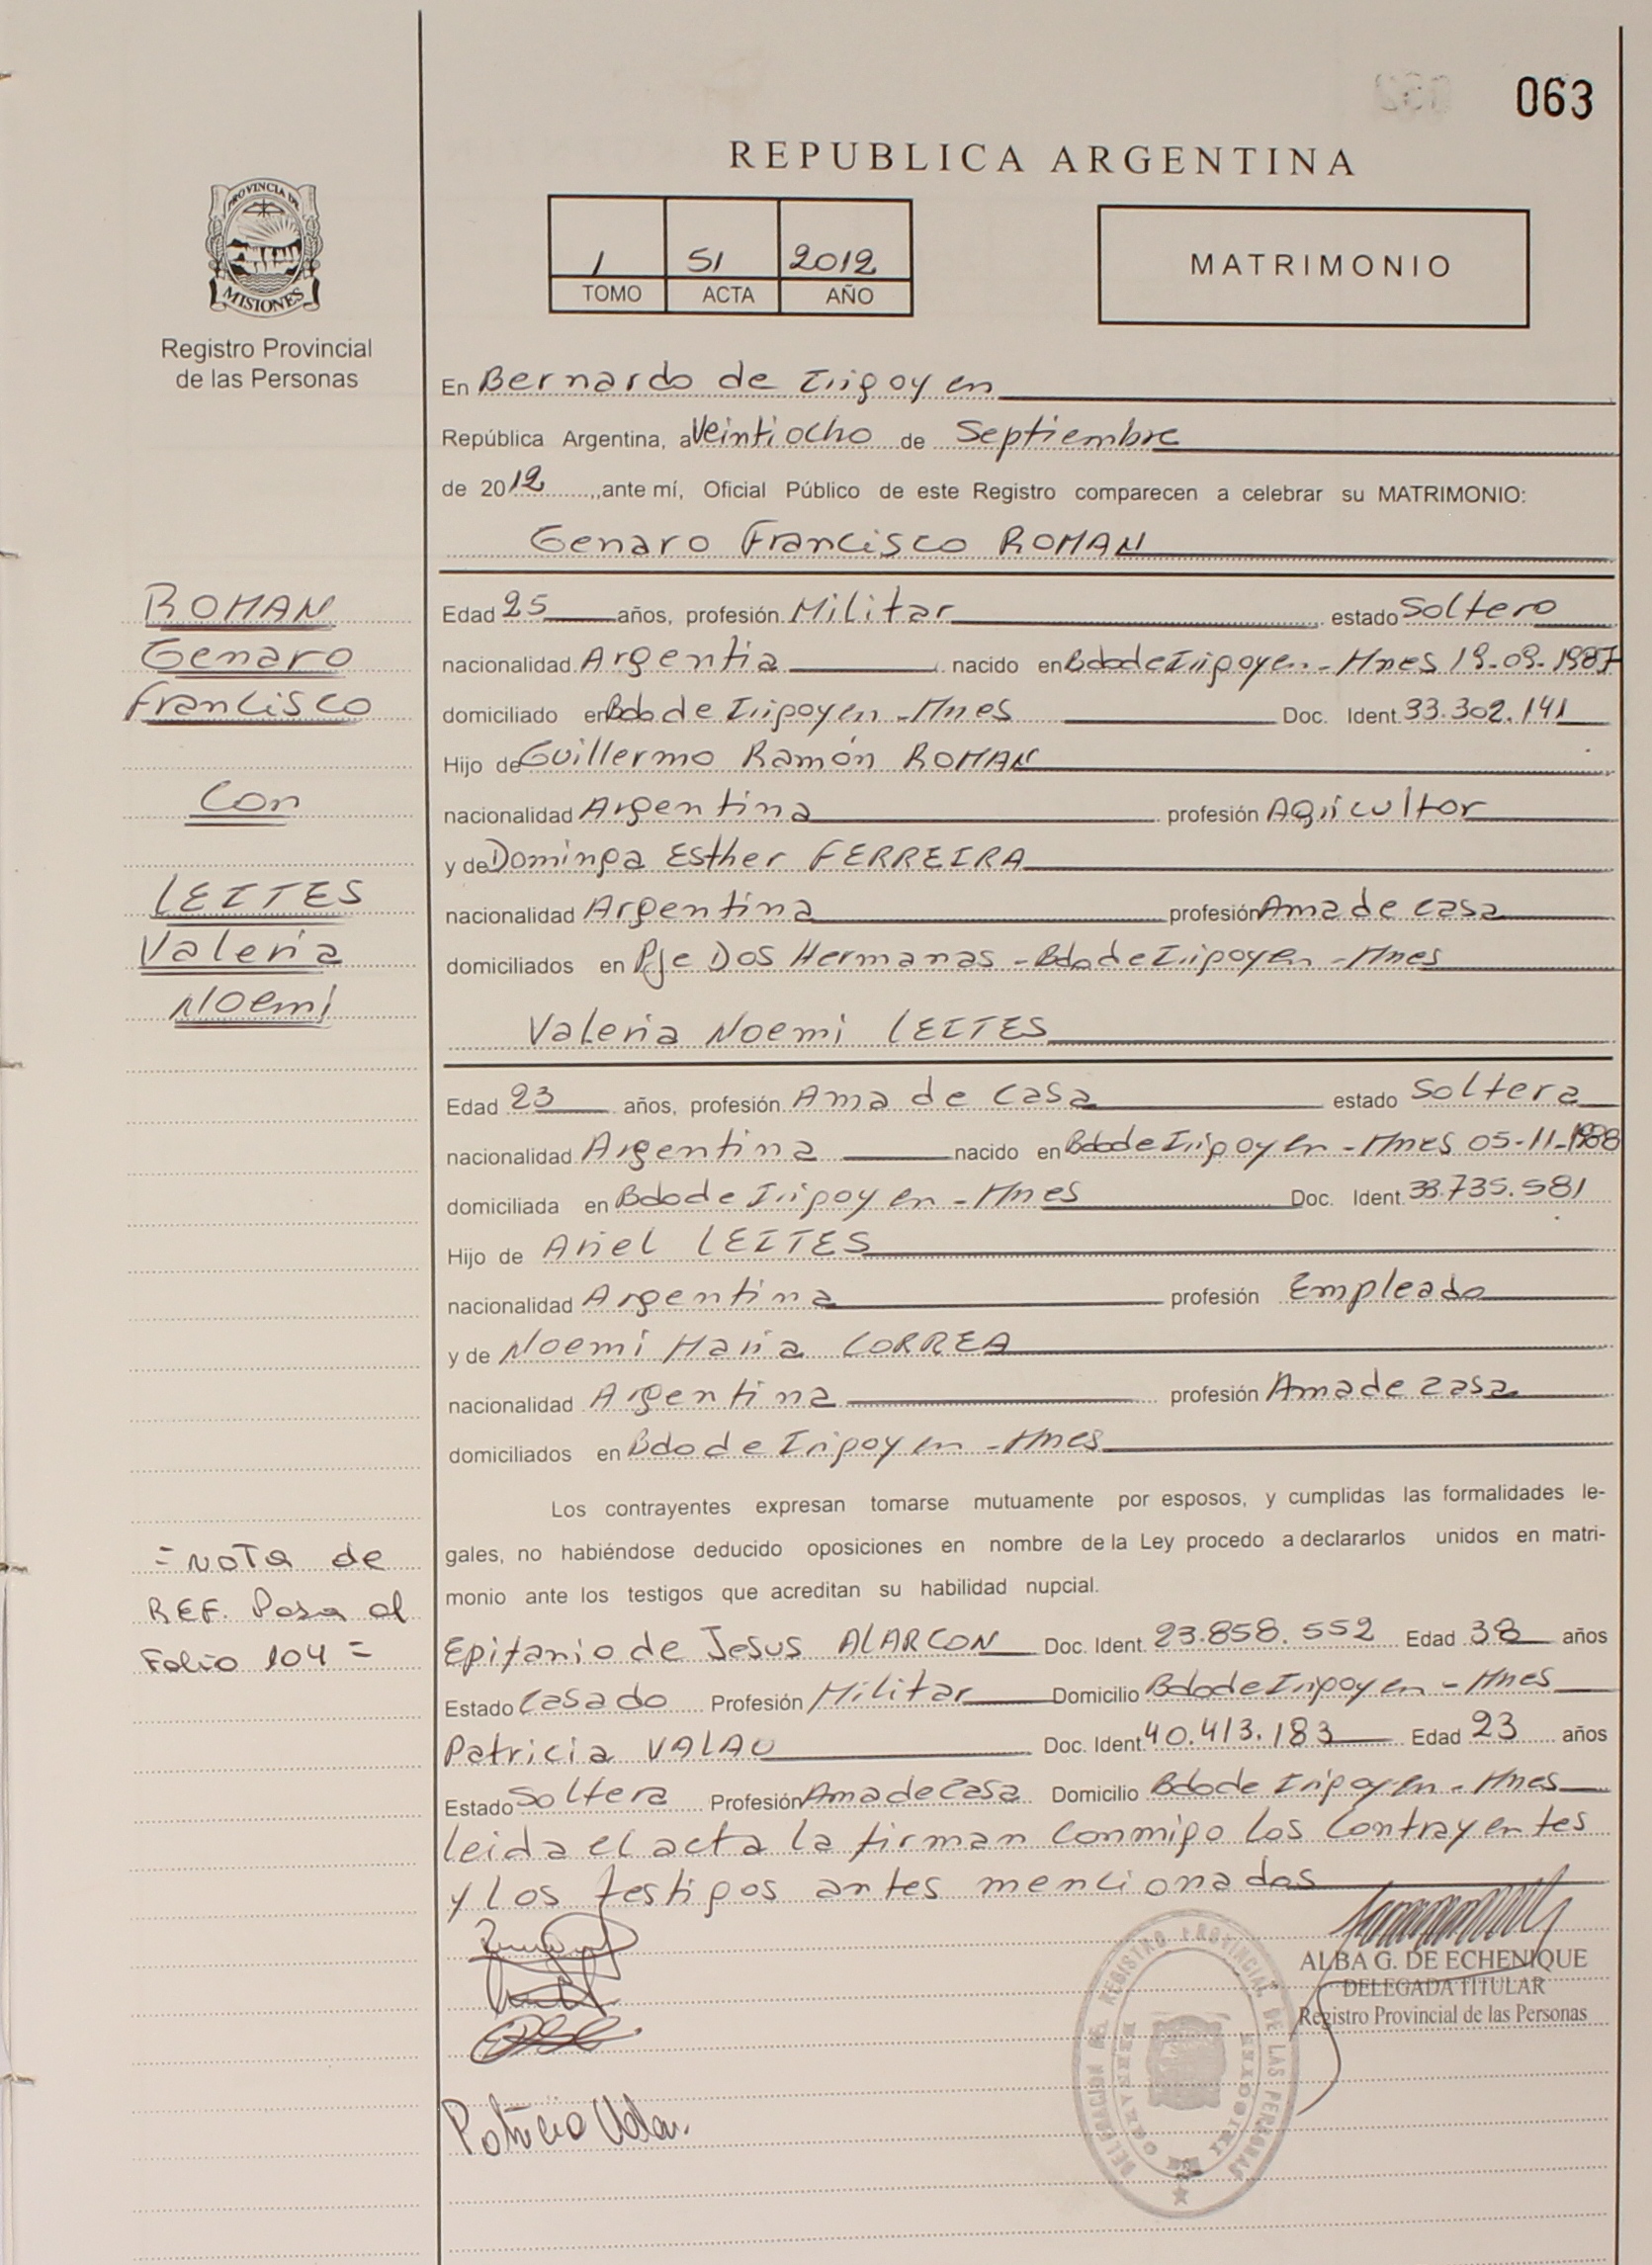 063
REPUBLICA ARGENTINA
PROVINCIA DE
MISIONES
Registro Provincial
de las Personas
1 51 2012
TOMO ACTA AÑO
MATRIMONIO
En Bernardo de Irigoyen
República Argentina, a Veintiocho de Septiembre
de 2012, ante mí, Oficial Público de este Registro comparecen a celebrar su MATRIMONIO:
Genaro Francisco ROMAN
ROMAN
Genaro
Francisco
Con
LEITES
Valeria
Noemi
Edad 25 años, profesión Militar estado Soltero
nacionalidad Argentia nacido en Bdo de Irigoyen - Mnes 19-09-1987
domiciliado en Bdo de Irigoyen - Mnes Doc. Ident. 33.302.141
Hijo de Guillermo Ramón ROMAN
nacionalidad Argentina profesión Agricultor
y de Dominga Esther FERREIRA
nacionalidad Argentina profesión Ama de casa
domiciliados en Pje Dos Hermanas - Bdo de Irigoyen - Mnes
Valeria Noemi LEITES
Edad 23 años, profesión Ama de casa estado Soltera
nacionalidad Argentina nacido en Bdo de Irigoyen - Mnes 05-11-1988
domiciliada en Bdo de Irigoyen - Mnes Doc. Ident. 33.735.581
Hijo de Ariel LEITES
nacionalidad Argentina profesión Empleado
y de Noemi Maria CORREA
nacionalidad Argentina profesión Ama de casa
domiciliados en Bdo de Irigoyen - Mnes
Los contrayentes expresan tomarse mutuamente por esposos, y cumplidas las formalidades le-
gales, no habiéndose deducido oposiciones en nombre de la Ley procedo a declararlos unidos en matri-
monio ante los testigos que acreditan su habilidad nupcial.
= NOTA de
REF. Pasa al
Folio 104 =
Epifanio de Jesus ALARCON Doc. Ident. 23.858.552 Edad 38 años
Estado Casado Profesión Militar Domicilio Bdo de Irigoyen - Mnes
Patricia VALAU Doc. Ident. 40.413.183 Edad 23 años
Estado Soltera Profesión Ama de Casa Domicilio Bdo de Irigoyen - Mnes
leida el acta la firman conmigo los contrayentes
y los testigos antes mencionados
ALBA G. DE ECHENIQUE
DELEGADA TITULAR
Registro Provincial de las Personas
DELEGACION DEL REGISTRO PROVINCIAL DE LAS PERSONAS
BERNARDO DE IRIGOYEN